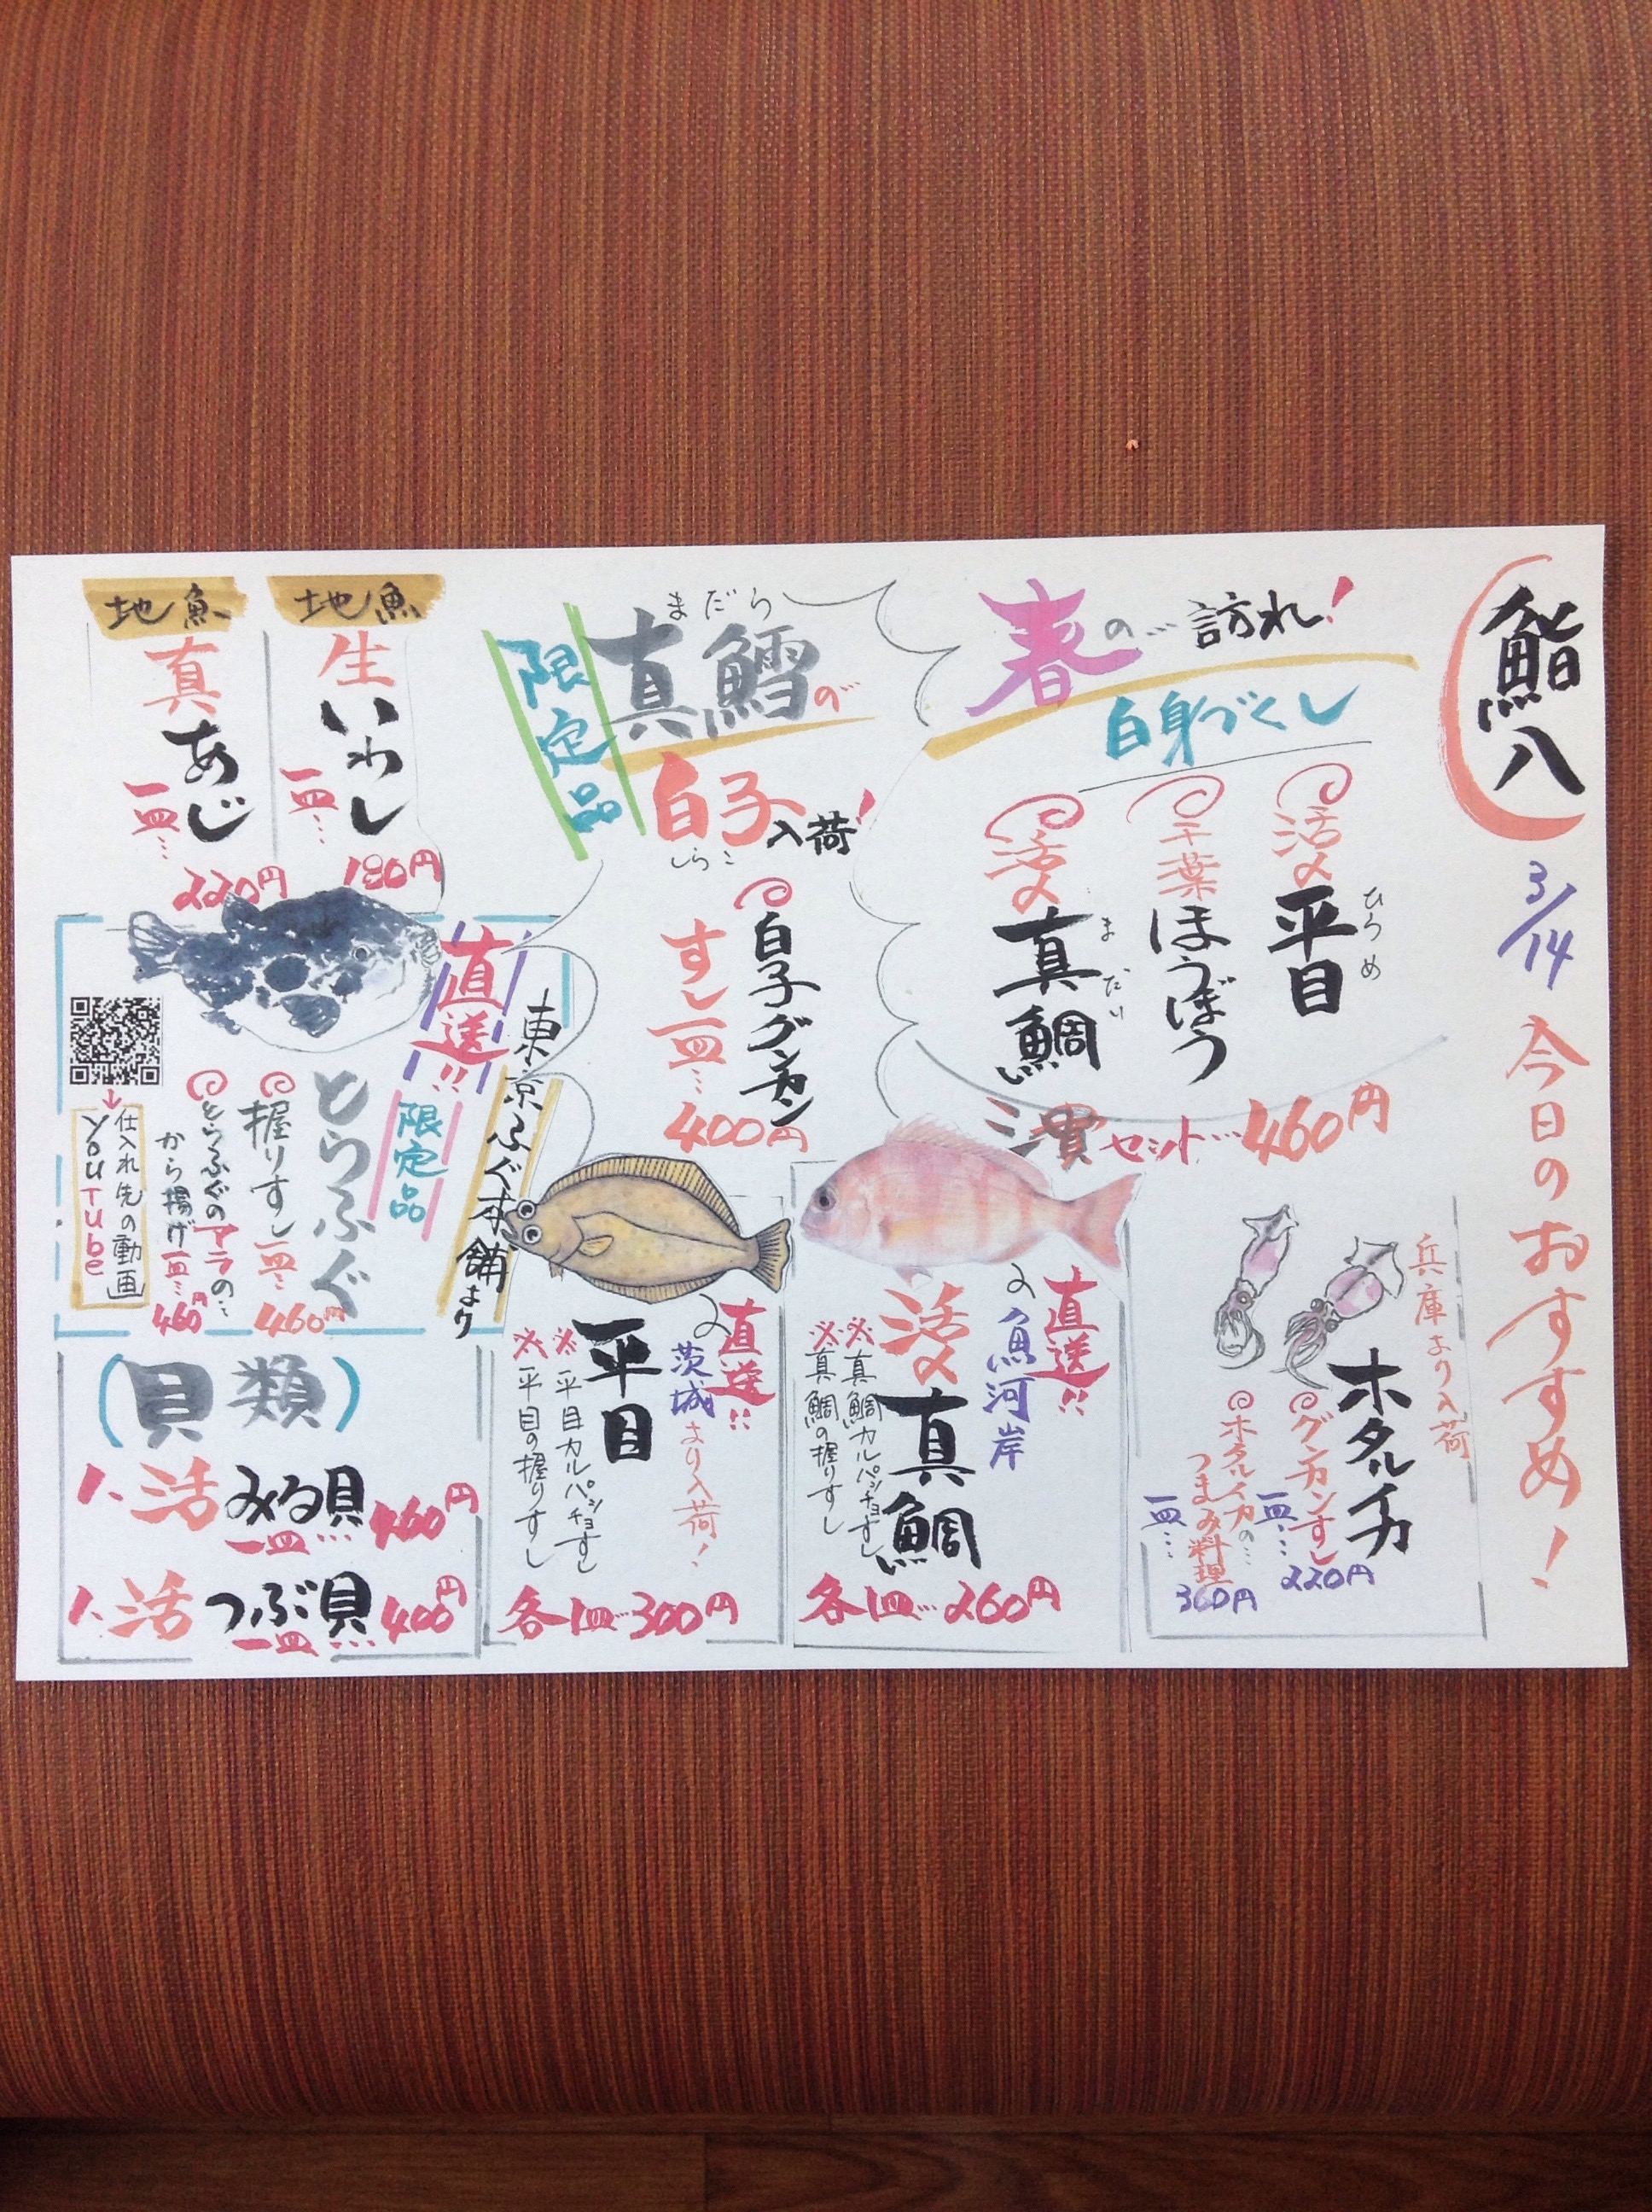 鮨八
3/14
今日のおすすめ!
春の…訪れ!
白身づくし
活〆平目
ひらめ
千葉ほうぼう
活〆真鯛
まだい
三貫セット…460円
兵庫より入荷
ホタルイカ
グンカンすし
一皿…
220円
ホタルイカの…
つまみ料理
一皿…
360円
限定品
まだら
真鱈の
白子入荷!
しらこ
白子グンカン
すし一皿…
400円
直送!!
魚河岸
活〆真鯛
※真鯛カルパッチョすし
※真鯛の握りすし
各1皿…260円
直送!!
茨城より入荷!
平目
※平目カルパッチョすし
※平目の握りすし
各1皿…300円
地魚
生いわし
一皿…
180円
地魚
真あじ
一皿…
220円
直送!!
東京ふぐ本舗より
限定品
とらふぐ
握りすし一皿…
460円
とらふぐのアラの…
から揚げ一皿…
460円
仕入れ先の動画
YouTube
(貝類)
活みる貝
一皿…
460円
活つぶ貝
一皿…
400円